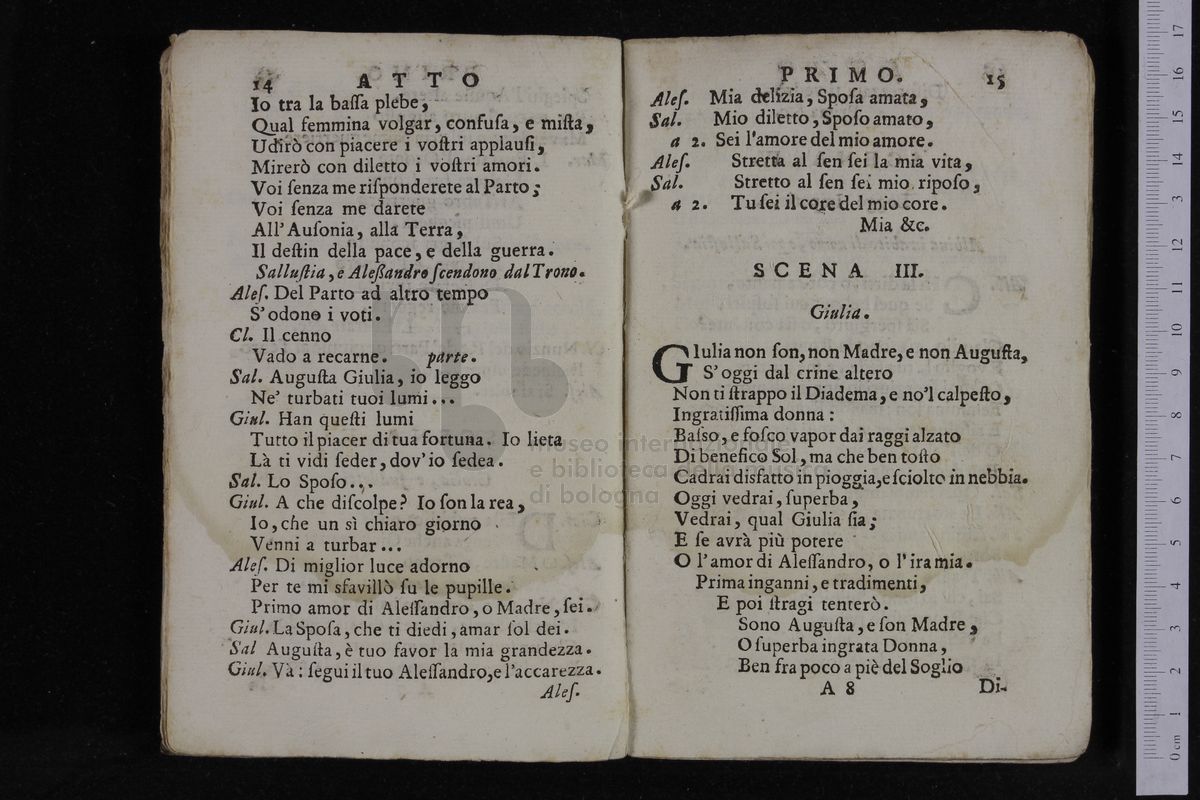 14 ATTO
Io tra la baſſa plebe,
Qual femmina volgar, confuſa, e miſta,
Udirò con piacere i voſtri applauſi,
Mirerò con diletto i voſtri amori.
Voi ſenza me riſponderete al Parto;
Voi ſenza me darete
All' Auſonia, alla Terra,
Il deſtin della pace, e della guerra.
Salluſtia, e Aleßandro ſcendono dal Trono.
Aleſ. Del Parto ad altro tempo
S'odono i voti.
Cl. Il cenno
Vado a recarne. parte.
Sal. Auguſta Giulia, io leggo
Ne' turbati tuoi lumi...
Giul. Han queſti lumi
Tutto il piacer di tua fortuna. Io lieta
Là ti vidi ſeder, dov'io ſedea.
Sal. Lo Spoſo...
Giul. A che diſcolpe? Io ſon la rea,
Io, che un sì chiaro giorno
Venni a turbar...
Aleſ. Di miglior luce adorno
Per te mi sfavillò ſu le pupille.
Primo amor di Aleſſandro, o Madre, ſei.
Giul. La Spoſa, che ti diedi, amar ſol dei.
Sal Auguſta, è tuo favor la mia grandezza.
Giul. Và: ſegui il tuo Aleſſandro, e l'accarezza.
Aleſ.
PRIMO. 15
Aleſ. Mia delizia, Spoſa amata,
Sal. Mio diletto, Spoſo amato,
a 2. Sei l'amore del mio amore.
Aleſ. Stretta al ſen ſei la mia vita,
Sal. Stretto al ſen ſei mio ripoſo,
a 2. Tu ſei il core del mio core.
Mia &c.
SCENA III.
Giulia.
GIulia non ſon, non Madre, e non Auguſta,
S'oggi dal crine altero
Non ti ſtrappo il Diadema, e no'l calpeſto,
Ingratiſſima donna:
Baſso, e foſco vapor dai raggi alzato
Di benefico Sol, ma che ben toſto
Cadrai disfatto in pioggia, e ſciolto in nebbia.
Oggi vedrai, ſuperba,
Vedrai, qual Giulia ſia;
E ſe avrà più potere
O l'amor di Aleſſandro, o l'ira mia.
Prima inganni, e tradimenti,
E poi ſtragi tenterò.
Sono Auguſta, e ſon Madre,
O ſuperba ingrata Donna,
Ben fra poco a piè del Soglio
A 8 Di-
museo internazionale
e biblioteca della musica
di bologna
0 cm 1 2 3 4 5 6 7 8 9 10 11 12 13 14 15 16 17